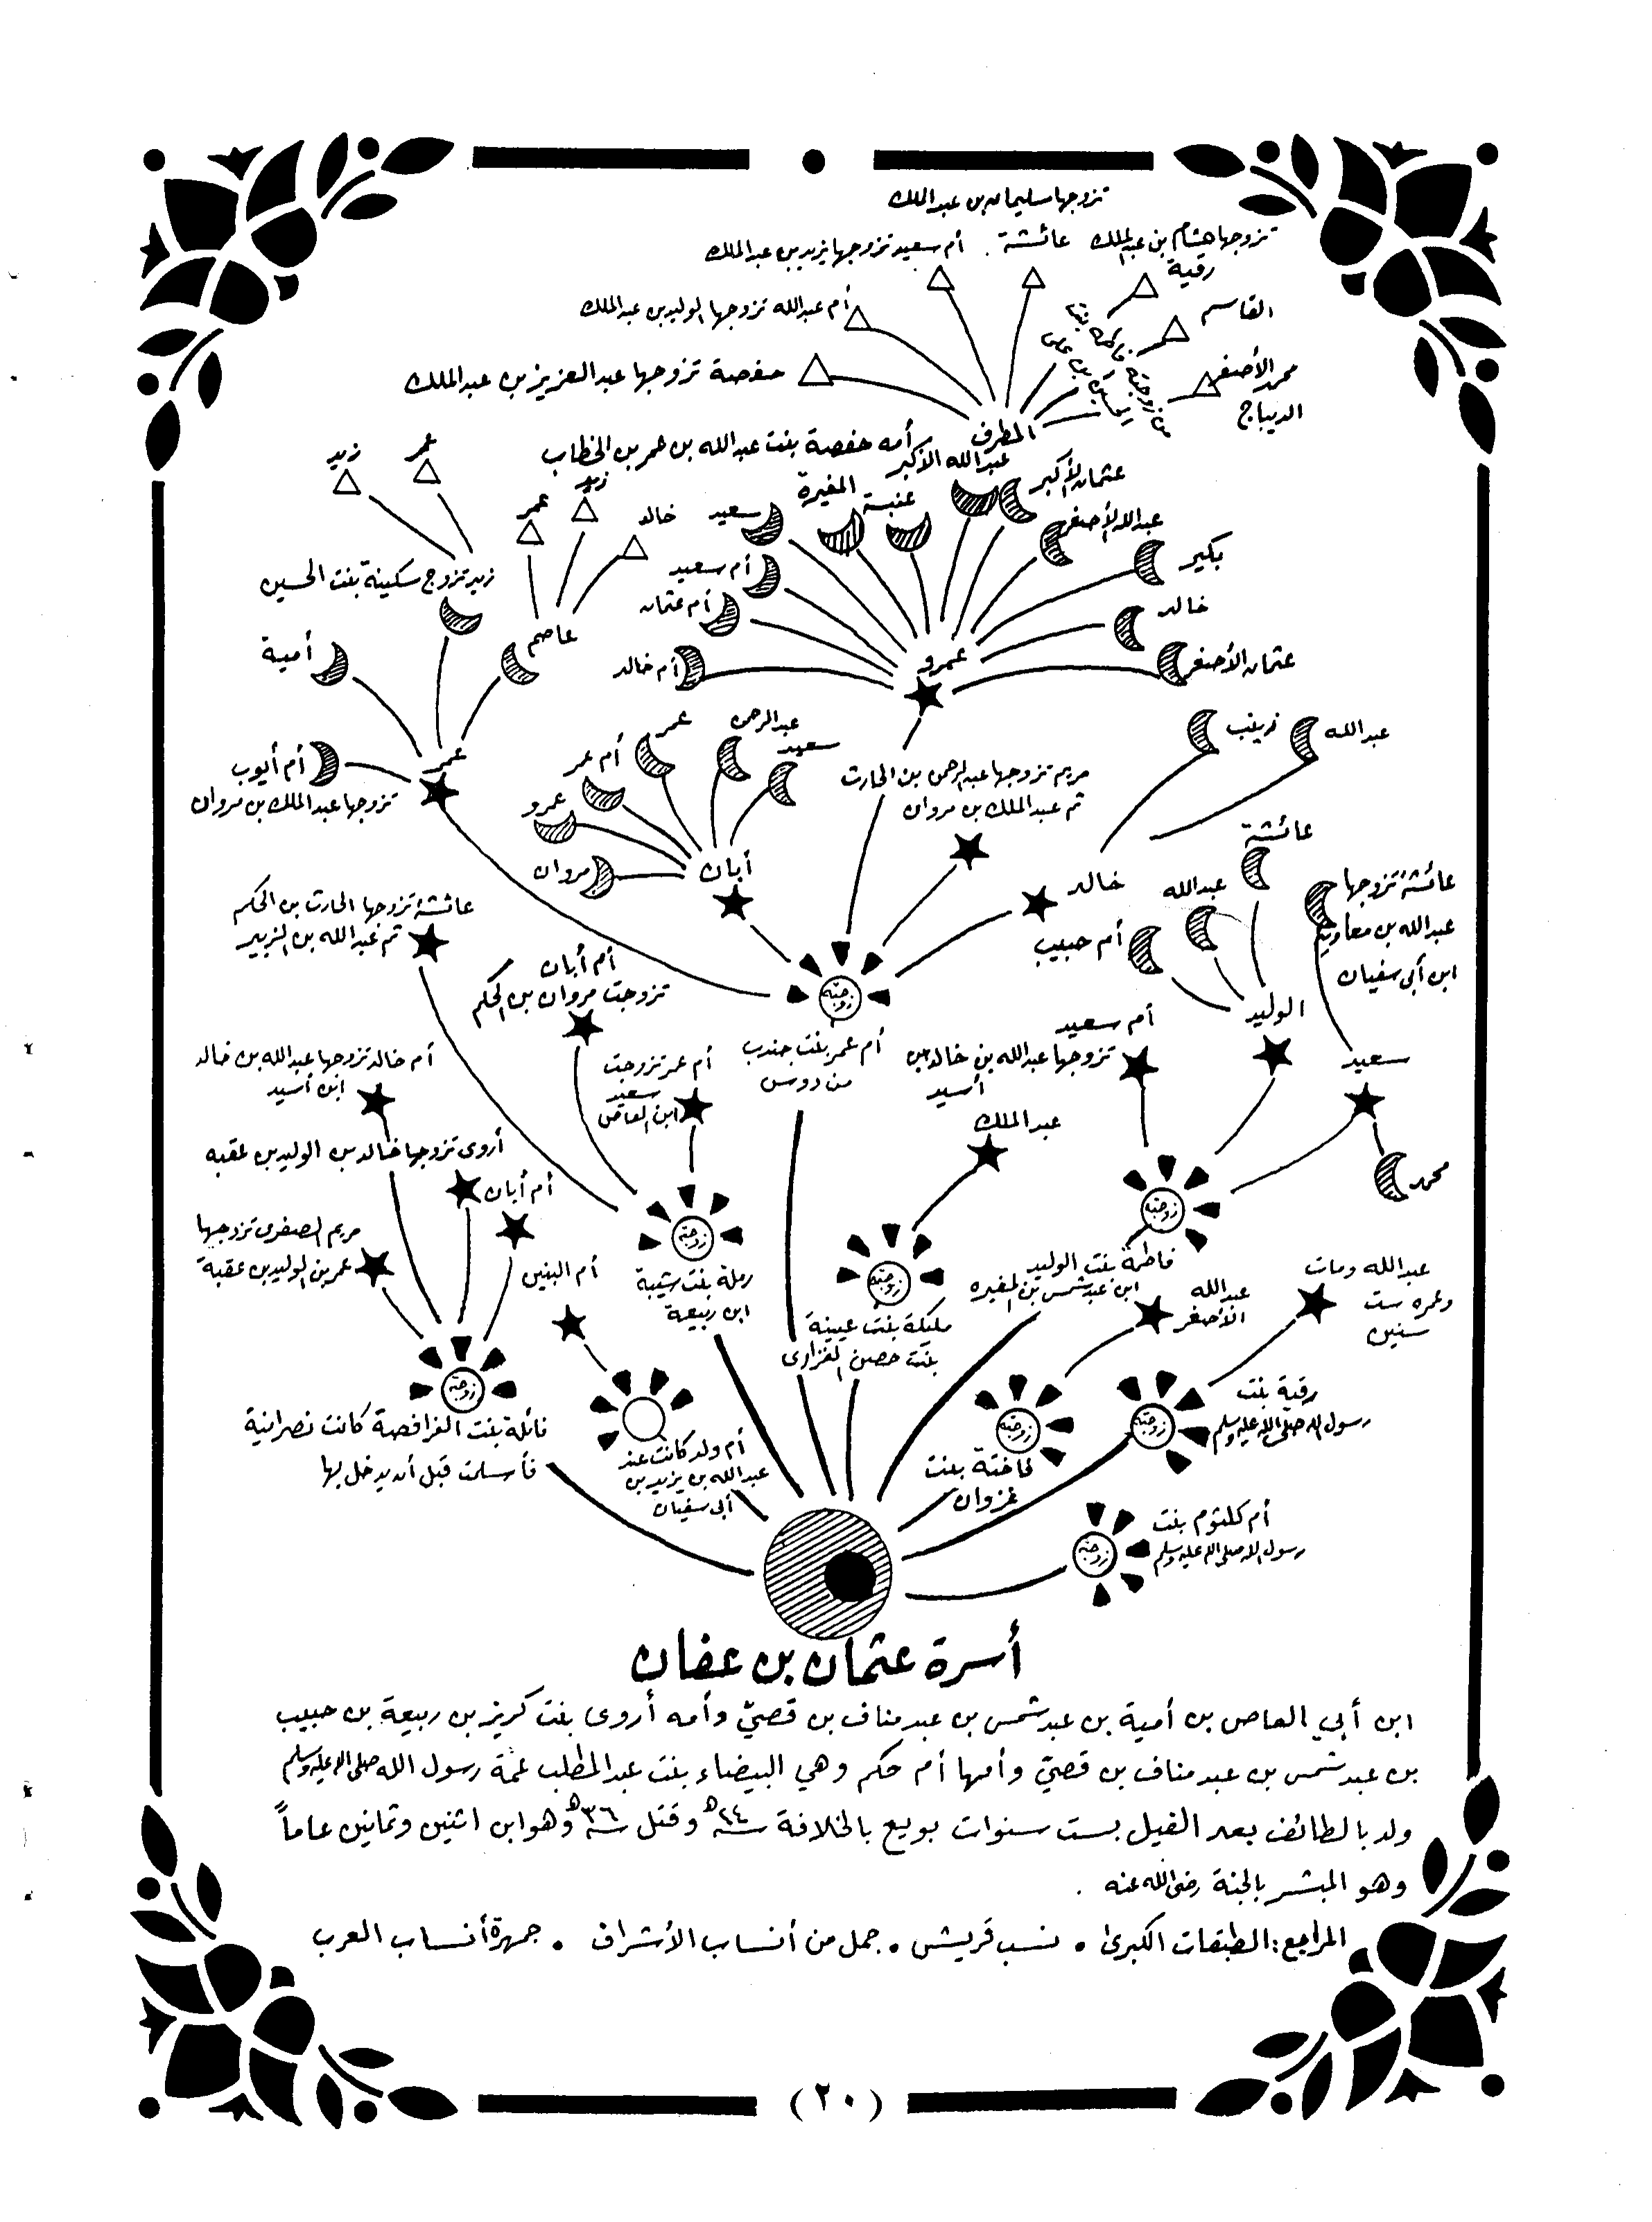 تزوجها سليمان بن عبد الملك
تزوجها هشام بن عبد الملك
رقية
عائشة
أم سعيد تزوجها يزيد بن عبد الملك
أم عبدالله تزوجها الوليد بن عبد الملك
القاسم
حفصة تزوجها عبد العزيز بن عبد الملك
محمد الأصغر
الديباج
زوجته فاطمة بنت
حسين بن علي
المطرف
عبدالله الأكبر
أمه حفصة بنت عبد الله بن عمر بن الخطاب
زيد
عمر
عمر
زيد
خالد
سعيد
المغيرة
عنبسة
عثمان الأكبر
عبدالله الأصغر
بكير
خالد
عثمان الأصغر
أم سعيد
أم عثمان
أم خالد
عمرو
زيد تزوج سكينة بنت الحسين
عاصم
أمية
أم أيوب
تزوجها عبد الملك بن مروان
عمر
عمر
عبدالرحمن
سعيد
أم عمر
عمرو
مروان
أبان
مريم تزوجها عبد الرحمن بن الحارث
ثم عبد الملك بن مروان
زينب
عبدالله
خالد
عائشة
عبدالله
أم حبيب
الوليد
عائشة تزوجها
عبدالله بن معاوية
ابن أبي سفيان
سعيد
محمد
عائشة تزوجها الحارث بن الحكم
ثم عبدالله بن الزبير
أم أبان
تزوجت مروان بن الحكم
زوجته
أم عمر بنت جندب
من دوس
أم سعيد
تزوجها عبدالله بن خالد بن
أسيد
أم خالد تزوجها عبدالله بن خالد
ابن أسيد
أم عمر تزوجت
سعيد
ابن العاص
عبد الملك
أروى تزوجها خالد بن الوليد بن عقبه
أم أبان
مريم الصغرى تزوجها
عمر بن الوليد بن عقبة
أم البنين
زوجته
رملة بنت شيبة
ابن ربيعة
زوجته
مليكة بنت عيينة
بنت حصن الفزارى
زوجته
فاطمة بنت الوليد
ابن عبد شمس بن المغيره
عبدالله
الأصغر
عبدالله ومات
وعمره ست
سنين
زوجته
نائلة بنت الفرافصة كانت نصرانية
فأسلمت قبل أن يدخل بها
أم ولد كانت عند
عبدالله بن يزيد بن
أبى سفيان
زوجته
فاختة بنت
غزوان
زوجته
رقية بنت
رسول الله صلى الله عليه وسلم
زوجته
أم كلثوم بنت
رسول الله صلى الله عليه وسلم
أسرة عثمان بن عفان
ابن أبي العاص بن أمية بن عبد شمس بن عبد مناف بن قصيّ وأمه أروى بنت كريز بن ربيعة بن حبيب
بن عبد شمس بن عبد مناف بن قصيّ وأمها أم حكم وهي البيضاء بنت عبد المطلب عمة رسول الله صلى الله عليه وسلم
ولد بالطائف بعد الفيل بست سنوات بويع بالخلافة سنة ٢٤ هـ وقتل سنة ٣٦ هـ وهو ابن اثنين وثمانين عاماً
وهو المبشر بالجنة رضي الله عنه .
المراجع : الطبقات الكبرى • نسب قريش • جمل من أنساب الأشراف • جمهرة أنساب العرب
(٢٠)